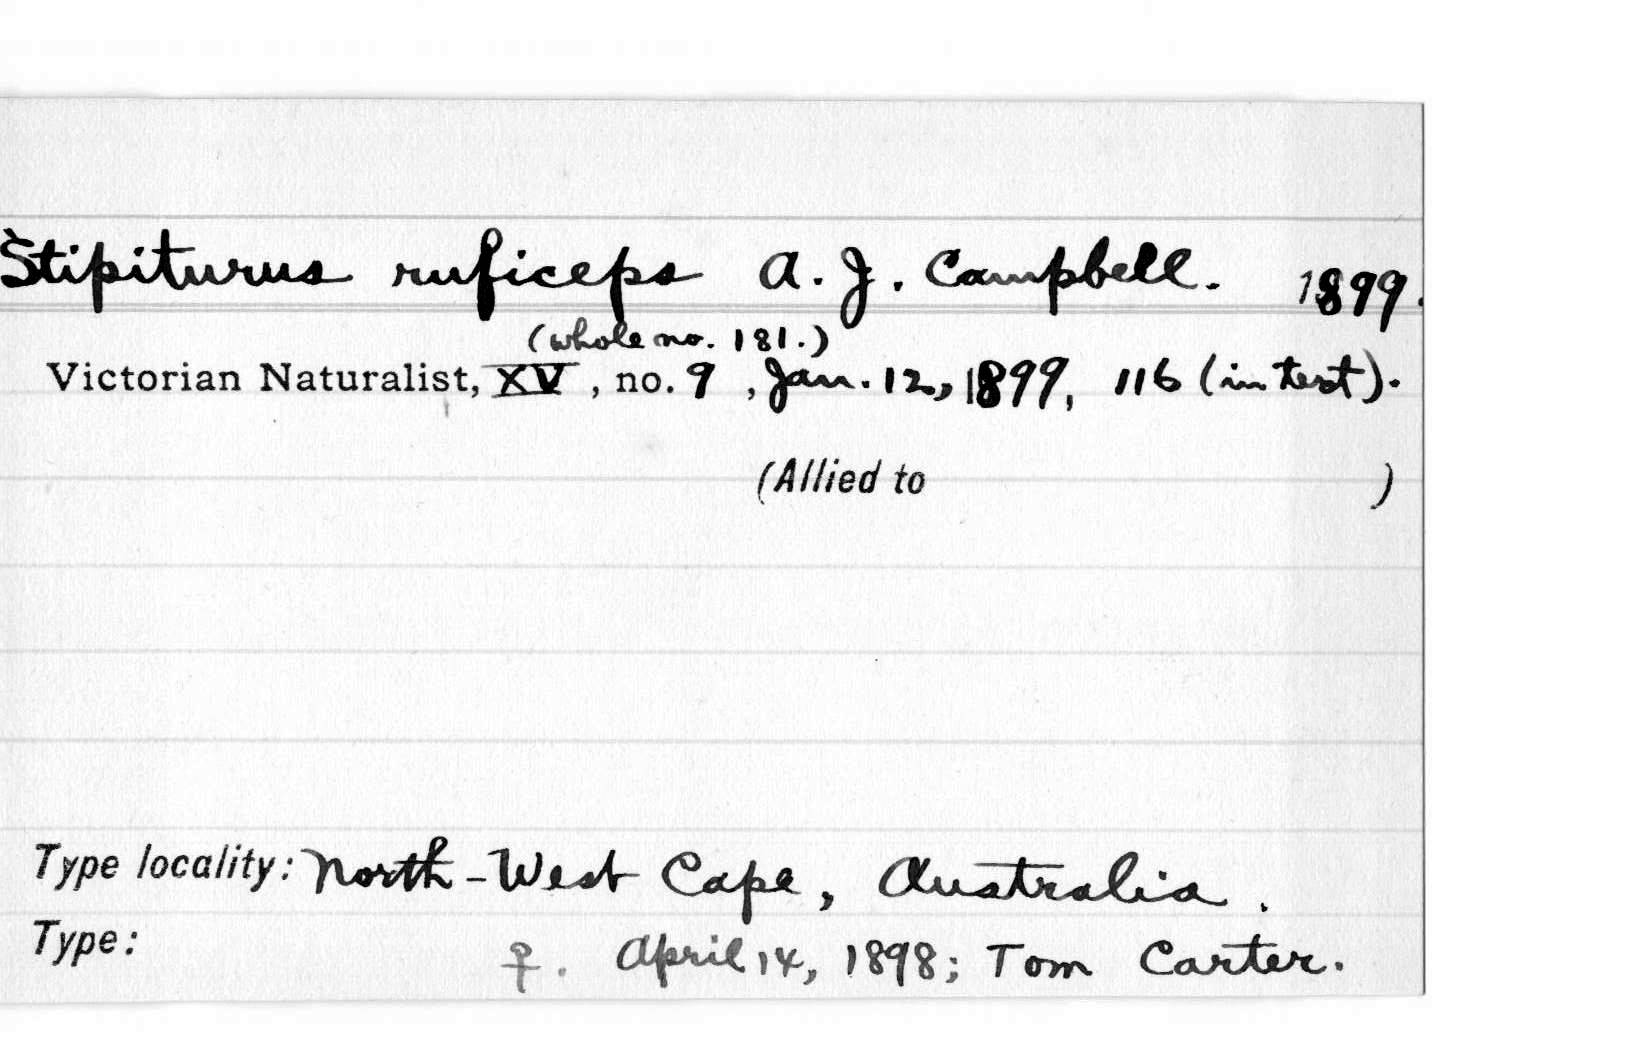 Stipiturus ruficeps A. J. Campbell. 1899.
(whole no. 181.)
Victorian Naturalist, XV, no. 9, Jan. 12, 1899, 116 (in text).
(Allied to )
Type locality: North-West Cape, Australia.
Type: ♀. April 14, 1898; Tom Carter.